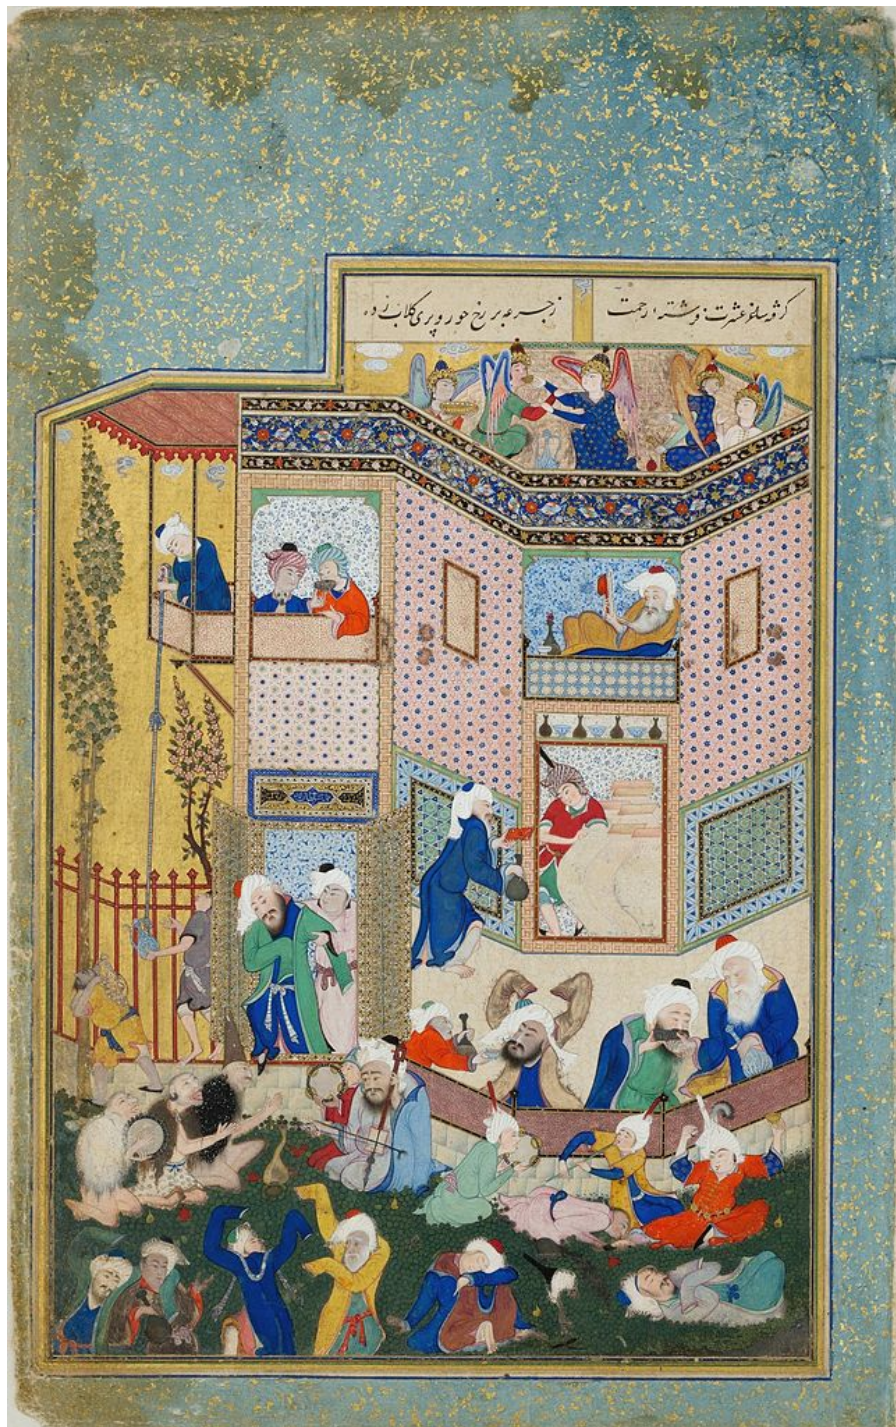 گرفته ساغر عشرت فرشته رحمت ز جرعه بر رخ حور و پری گلاب زده